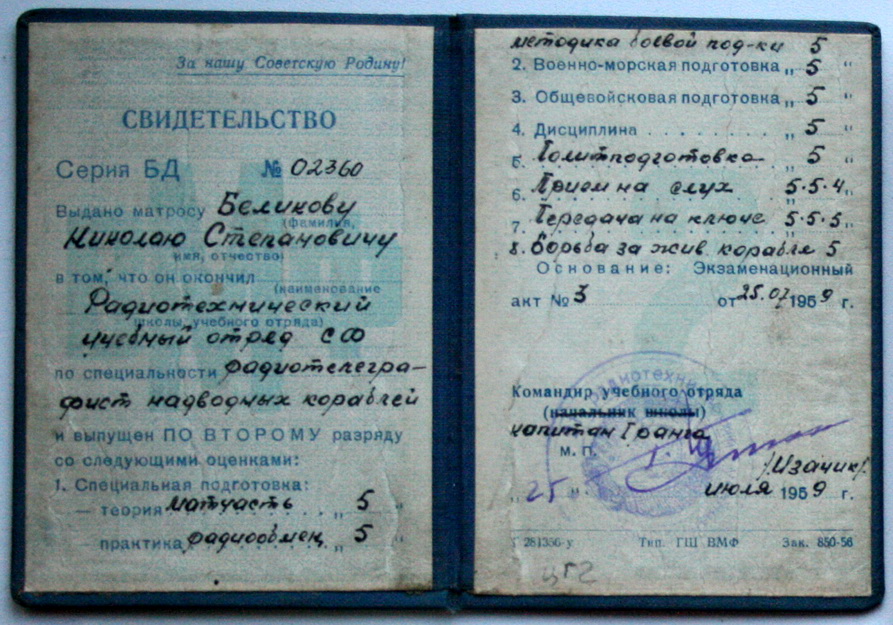 За нашу Советскую Родину!
СВИДЕТЕЛЬСТВО
Серия БД № 02360
Выдано матросу Беликову
(фамилия,
Николаю Степановичу
имя, отчество)
в том, что он окончил
(наименование
Радиотехнический
школы, учебного отряда)
учебный отряд СФ
по специальности радиотелегра-
фист надводных кораблей
и выпущен ПО ВТОРОМУ разряду
со следующими оценками:
1. Специальная подготовка:
— теория матчасть „ 5 "
— практика радиообмен „ 5 "
методика боевой под-ки 5
2. Военно-морская подготовка „ 5 "
3. Общевойсковая подготовка „ 5 "
4. Дисциплина . . . . . . . „ 5 "
5. Политподготовка 5 "
6. Прием на слух 5.5.4 "
7. Передача на ключе 5.5.5 "
8. Борьба за жив. корабля 5
Основание: Экзаменационный
акт № 3 от 25.07 1959 г.
Командир учебного отряда
(начальник школы)
капитан I ранга
М. П.
/Изачик/
„ 25 " июля 1959 г.
281356-у Тип. ГШ ВМФ Зак. 850-56